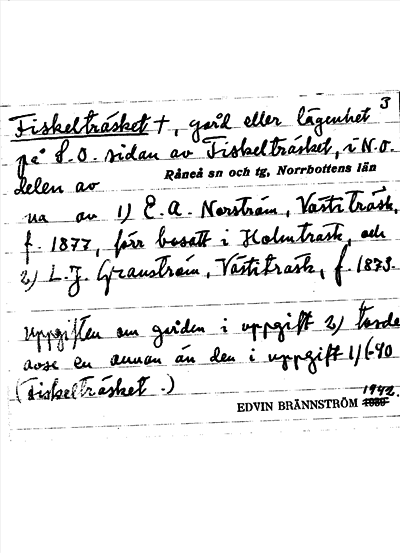 3
Fiskelträsket †, gård eller lägenhet
på S.O. sidan av Fiskelträsket, i N.O.
delen av Råneå sn och tg, Norrbottens län
ua av 1) E. A. Norström, Västiträsk,
f. 1877, förr bosatt i Holmträsk, och
2) L. J. Granström, Västiträsk, f. 1873.
Uppgiften om gården i uppgift 2) torde
avse en annan än den i uppgift 1)
(Fiskelträsket .)
1942.
EDVIN BRÄNNSTRÖM 1939